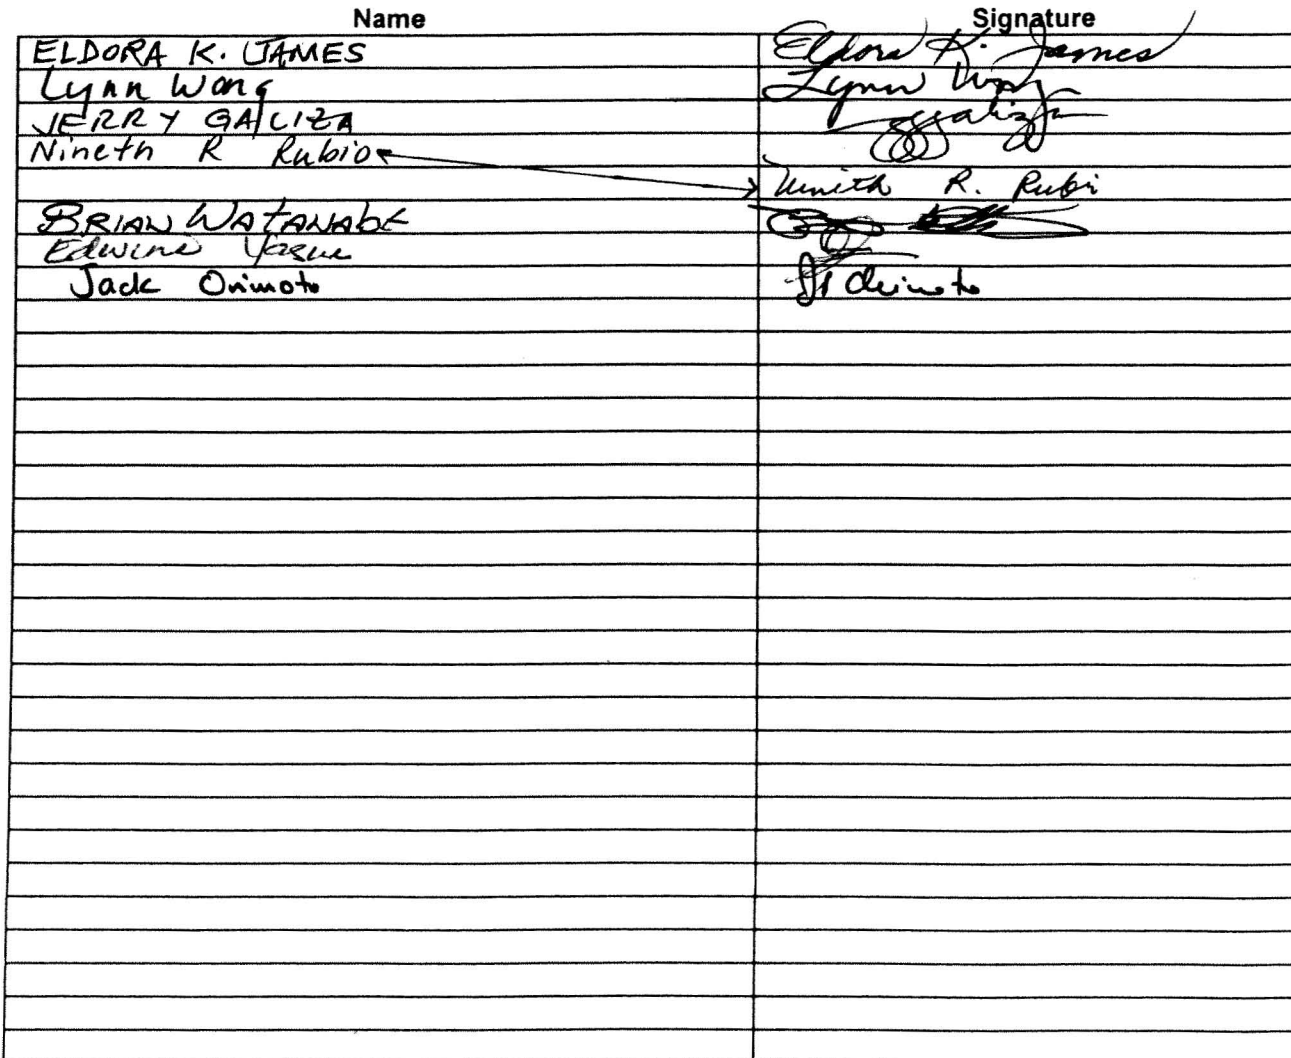 Name Signature
ELDORA K. JAMES Eldora K. James
Lynn Wong Lynn Wong
JERRY GALIZA
Nineth R Rubio
Nineth R. Rubio
BRIAN WATANABE
Edwina
Jack Orimoto J Orimoto